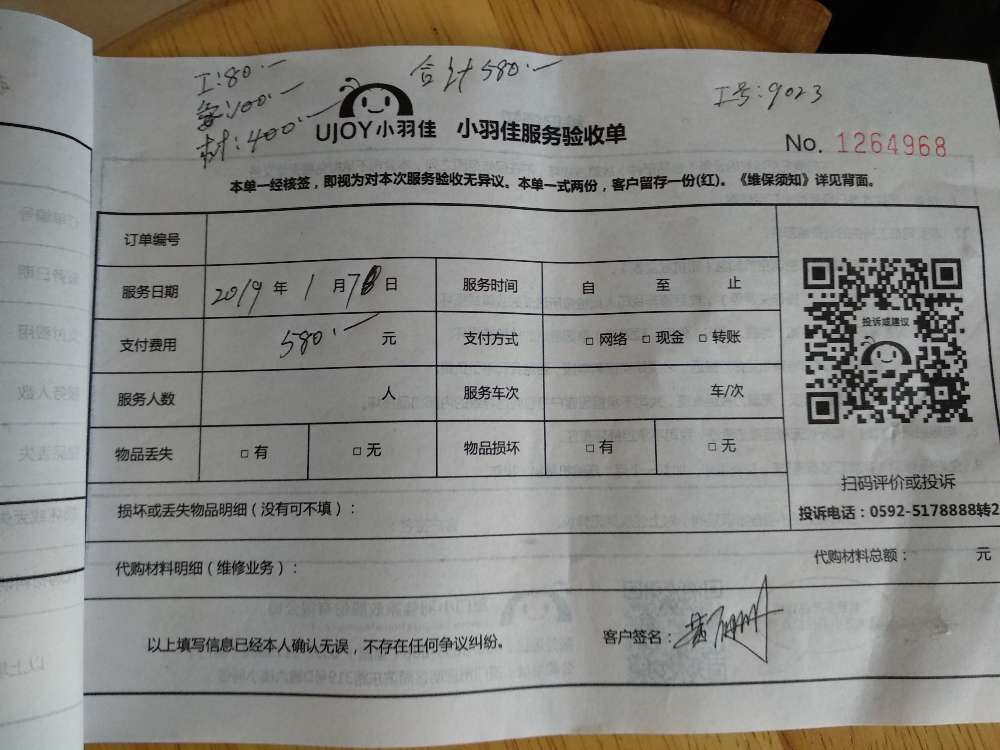 工:80.一
合计580.一
工号:9023
安:100.一
材:400.一
UJOY小羽佳 小羽佳服务验收单
No. 1264968
本单一经核签，即视为对本次服务验收无异议。本单一式两份，客户留存一份(红)。《维保须知》详见背面。
订单编号
服务日期 2019 年 1 月 7 日 服务时间 自 至 止
支付费用 580.一 元 支付方式 □ 网络 □ 现金 □ 转账
投诉或建议
服务人数 人 服务车次 车/次
物品丢失 □ 有 □ 无 物品损坏 □ 有 □ 无
扫码评价或投诉
损坏或丢失物品明细（没有可不填）：
投诉电话：0592-5178888转2
代购材料明细（维修业务）：
代购材料总额： 元
以上填写信息已经本人确认无误，不存在任何争议纠纷。
客户签名：